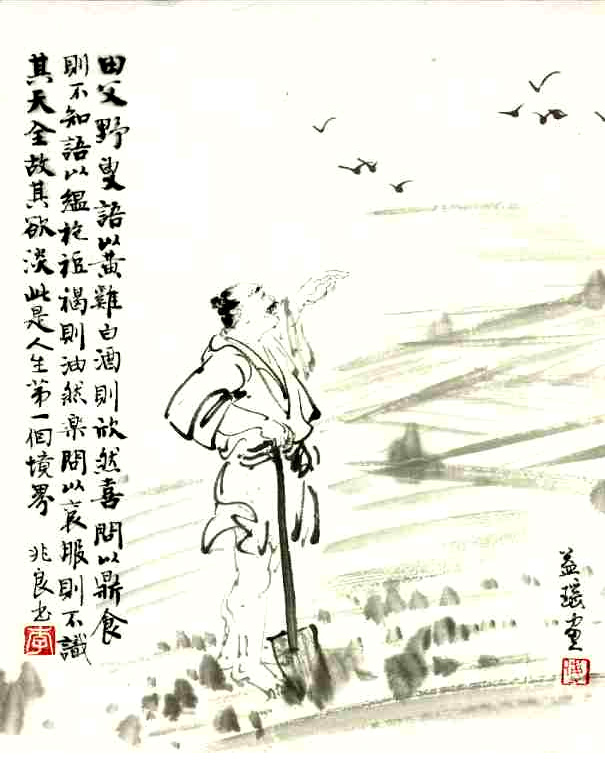 田父野叟語以黃雞白酒則欣然喜問以鼎食
則不知語以縕袍裋褐則油然楽問以袞服則不識
其天全故其欲淡此是人生第一個境界 兆良书
李
益瑶畫